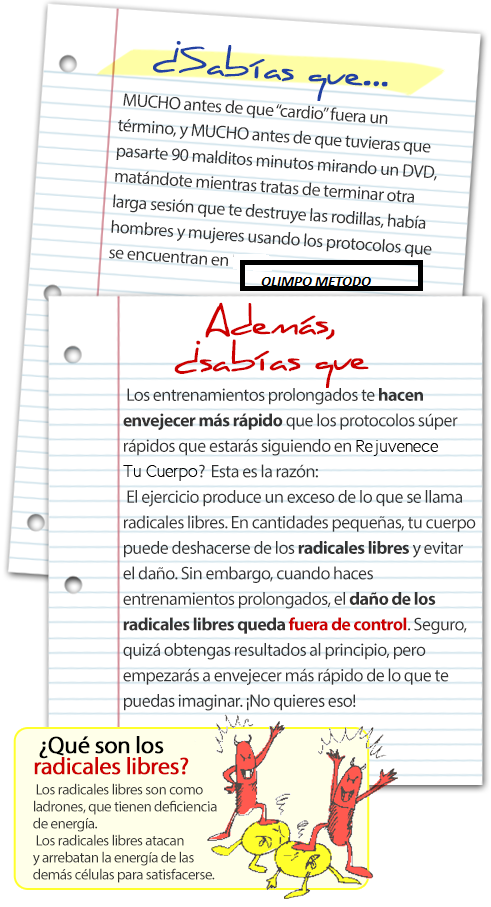 ¿Sabías que...
MUCHO antes de que “cardio” fuera un
término, y MUCHO antes de que tuvieras que
pasarte 90 malditos minutos mirando un DVD,
matándote mientras tratas de terminar otra
larga sesión que te destruye las rodillas, había
hombres y mujeres usando los protocolos que
se encuentran en
OLIMPO METODO
Además,
¿sabías que
Los entrenamientos prolongados te hacen
envejecer más rápido que los protocolos súper
rápidos que estarás siguiendo en Rejuvenece
Tu Cuerpo? Esta es la razón:
El ejercicio produce un exceso de lo que se llama
radicales libres. En cantidades pequeñas, tu cuerpo
puede deshacerse de los radicales libres y evitar
el daño. Sin embargo, cuando haces
entrenamientos prolongados, el daño de los
radicales libres queda fuera de control. Seguro,
quizá obtengas resultados al principio, pero
empezarás a envejecer más rápido de lo que te
puedas imaginar. ¡No quieres eso!
¿Qué son los
radicales libres?
Los radicales libres son como
ladrones, que tienen deficiencia
de energía.
Los radicales libres atacan
y arrebatan la energía de las
demás células para satisfacerse.